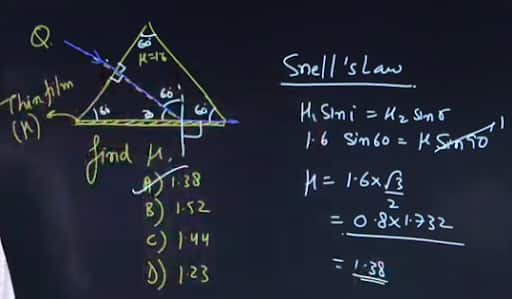 Q.
60°
μ=1.6
Thin film
(μ)
60
30
60
60
find μ.
A) 1.38
B) 1.52
C) 1.44
D) 1.23
Snell's Law
μ₁ Sin i = μ₂ Sin r
1.6 Sin 60 = μ Sin 90 1
μ = 1.6 × √3/2
= 0.8 × 1.732
= 1.38